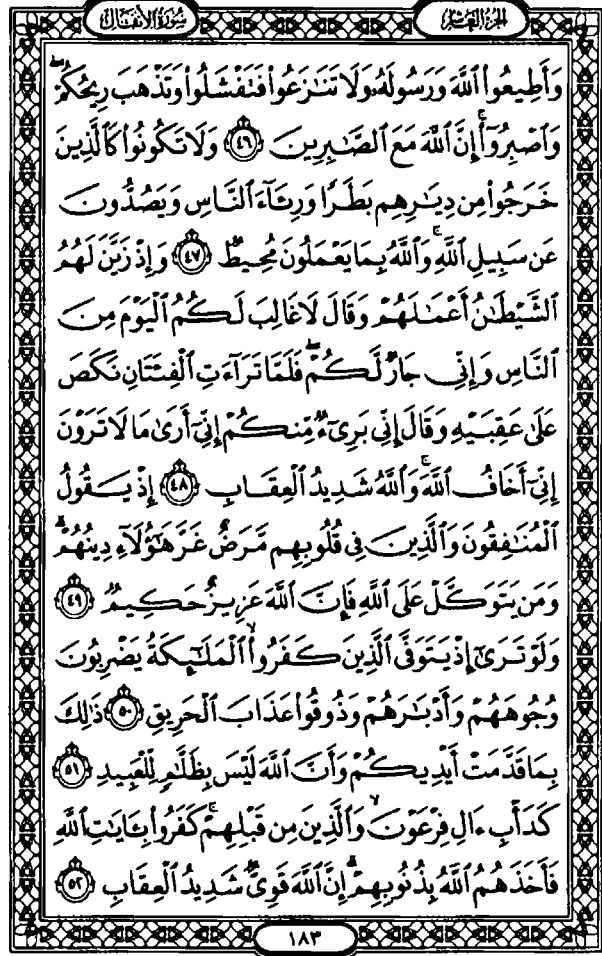 الجزء العاشر
سورة الأنفال
وَأَطِيعُوا۟ ٱللَّهَ وَرَسُولَهُۥ وَلَا تَنَـٰزَعُوا۟ فَتَفْشَلُوا۟ وَتَذْهَبَ رِيحُكُمْۖ
وَٱصْبِرُوٓا۟ۚ إِنَّ ٱللَّهَ مَعَ ٱلصَّـٰبِرِينَ ٤٦ وَلَا تَكُونُوا۟ كَٱلَّذِينَ
خَرَجُوا۟ مِن دِيَـٰرِهِم بَطَرًا وَرِئَآءَ ٱلنَّاسِ وَيَصُدُّونَ
عَن سَبِيلِ ٱللَّهِۚ وَٱللَّهُ بِمَا يَعْمَلُونَ مُحِيطٌ ٤٧ وَإِذْ زَيَّنَ لَهُمُ
ٱلشَّيْطَـٰنُ أَعْمَـٰلَهُمْ وَقَالَ لَا غَالِبَ لَكُمُ ٱلْيَوْمَ مِنَ
ٱلنَّاسِ وَإِنِّى جَارٌ لَّكُمْۖ فَلَمَّا تَرَآءَتِ ٱلْفِئَتَانِ نَكَصَ
عَلَىٰ عَقِبَيْهِ وَقَالَ إِنِّى بَرِىٓءٌ مِّنكُمْ إِنِّىٓ أَرَىٰ مَا لَا تَرَوْنَ
إِنِّىٓ أَخَافُ ٱللَّهَۚ وَٱللَّهُ شَدِيدُ ٱلْعِقَابِ ٤٨ إِذْ يَقُولُ
ٱلْمُنَـٰفِقُونَ وَٱلَّذِينَ فِى قُلُوبِهِم مَّرَضٌ غَرَّ هَـٰٓؤُلَآءِ دِينُهُمْۗ
وَمَن يَتَوَكَّلْ عَلَى ٱللَّهِ فَإِنَّ ٱللَّهَ عَزِيزٌ حَكِيمٌ ٤٩
وَلَوْ تَرَىٰٓ إِذْ يَتَوَفَّى ٱلَّذِينَ كَفَرُوا۟ۙ ٱلْمَلَـٰٓئِكَةُ يَضْرِبُونَ
وُجُوهَهُمْ وَأَدْبَـٰرَهُمْ وَذُوقُوا۟ عَذَابَ ٱلْحَرِيقِ ٥٠ ذَٰلِكَ
بِمَا قَدَّمَتْ أَيْدِيكُمْ وَأَنَّ ٱللَّهَ لَيْسَ بِظَلَّـٰمٍ لِّلْعَبِيدِ ٥١
كَدَأْبِ ءَالِ فِرْعَوْنَۙ وَٱلَّذِينَ مِن قَبْلِهِمْۚ كَفَرُوا۟ بِـَٔايَـٰتِ ٱللَّهِ
فَأَخَذَهُمُ ٱللَّهُ بِذُنُوبِهِمْۗ إِنَّ ٱللَّهَ قَوِىٌّ شَدِيدُ ٱلْعِقَابِ ٥٢
١٨٣